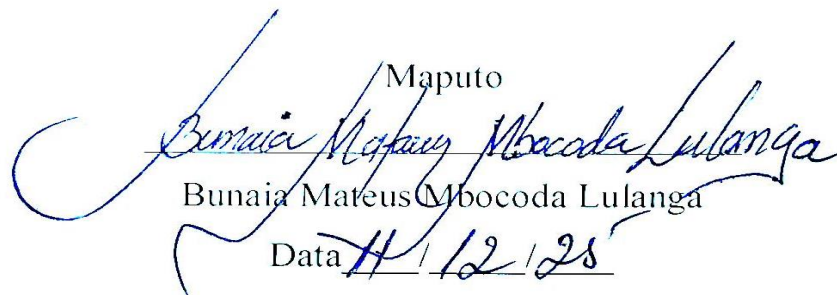 Maputo
Bunaia Mateus Mbocoda Lulanga
Bunaia Mateus Mbocoda Lulanga
Data 11/12/25